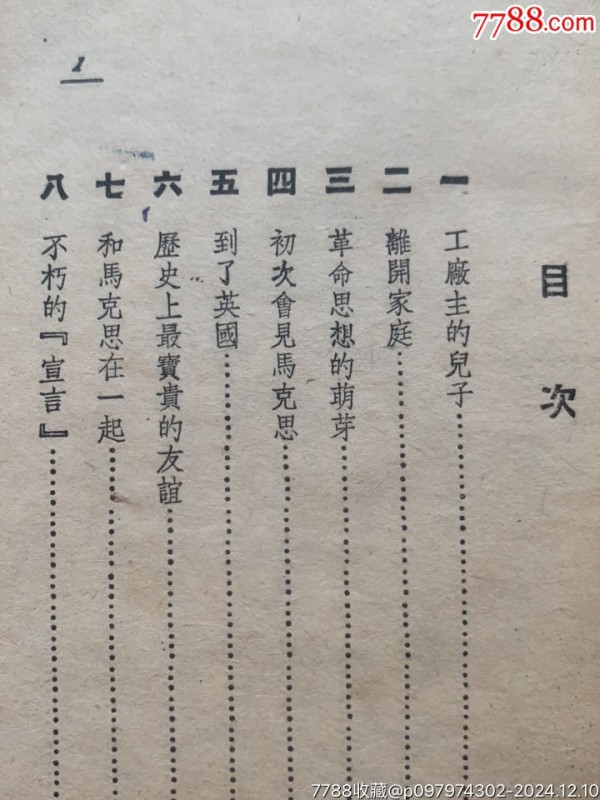 7788.com
1
目次
一 工廠主的兒子
二 離開家庭
三 革命思想的萌芽
四 初次會見馬克思
五 到了英國
六 歷史上最寶貴的友誼
七 和馬克思在一起
八 不朽的『宣言』
7788收藏@p097974302-2024.12.10